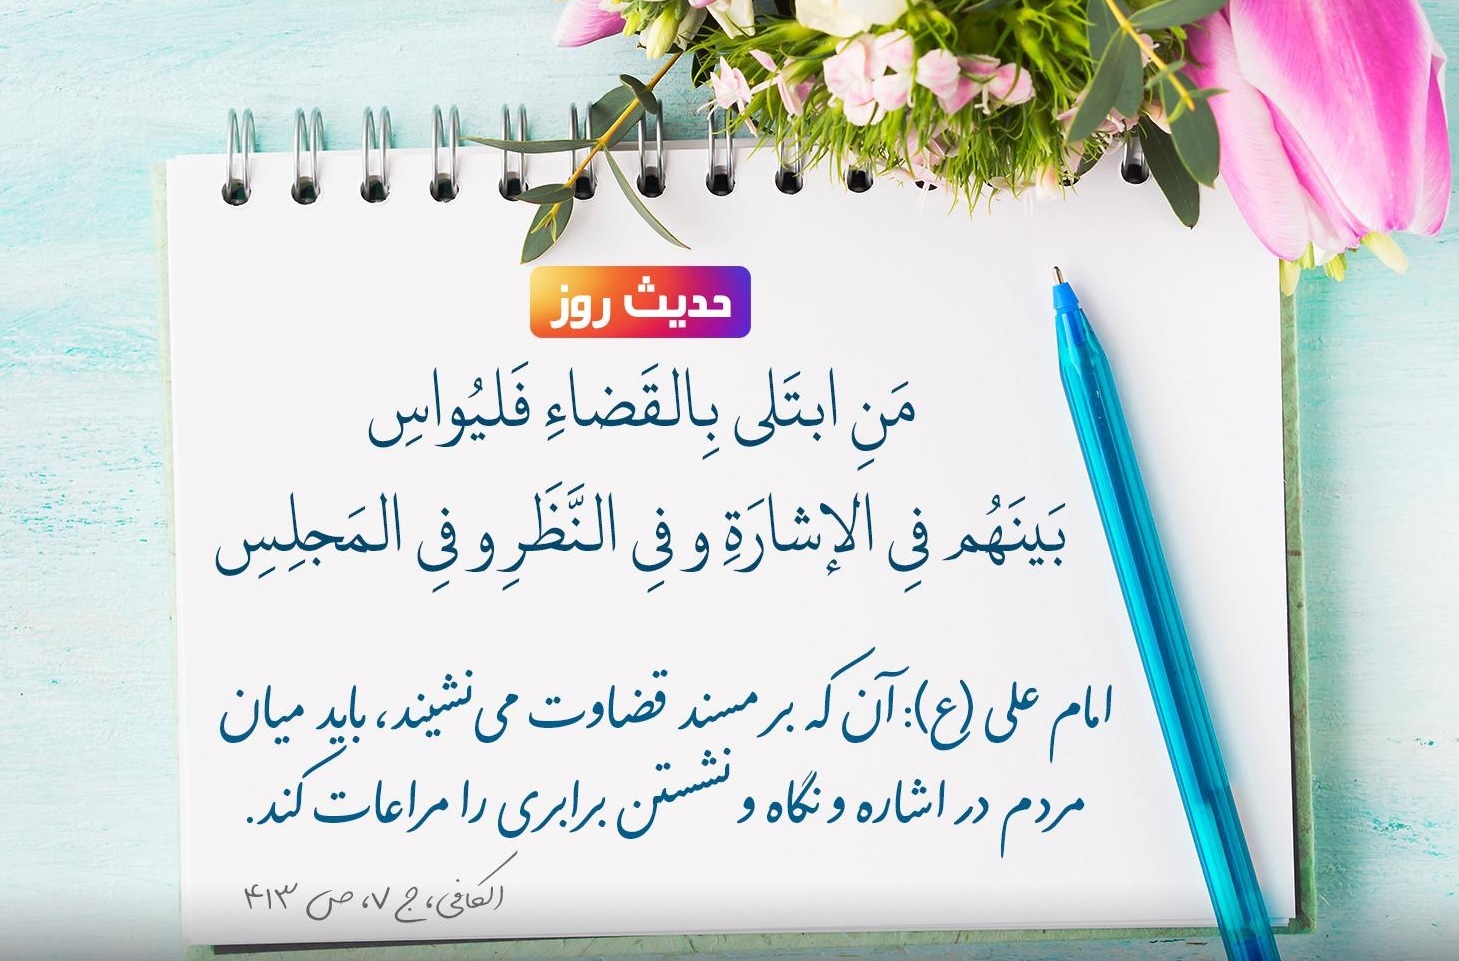 حدیث روز
مَنِ ابتَلی بِالقَضاءِ فَلیُواسِ
بَینَهُم فِی الإشارَةِ و فِی النَّظَرِ و فِی المَجلِسِ
امام علی (ع): آن که بر مسند قضاوت می‌نشیند، باید میان
مردم در اشاره و نگاه و نشستن برابری را مراعات کند.
الکافی، ج ۷، ص ۴۱۳